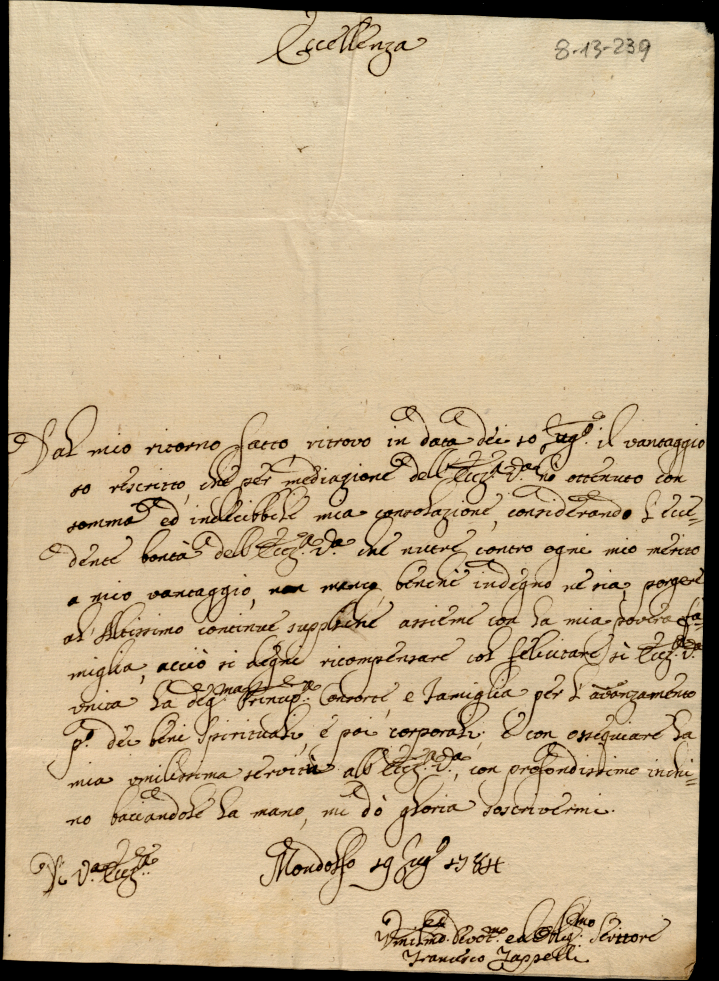 Eccellenza
8-13-239
Dal mio ritorno fatto ritrovo in data dei 10 Lug.º il vantaggio
so rescritto, che per mediazione dell'Ecc.ª V.ª hò ottenuto con
somma ed indecibbile mia consolazione, considerando l'ecce=
dente bontà dell'Ecc.ª V.ª che nutre contro ogni mio merito
a mio vantaggio, non manco, benche indegno ne sia, porgere
al Altissimo continue suppliche assieme con la mia povera fa=
miglia, acciò si degni ricompensare col felicitare sì l'Ecc.ª V.ª
unita la deg.ma Princip.ª Consorte e Famiglia per l'avanzamento
p.º dei beni spirituali, e poi corporali; E con ossequiare la
mia umilissima servitù all'Ecc.ª V.ª, con profondissimo inchi=
no baciandole la mano, mi dò gloria soscrivermi.
Di V.ª Ecc.ª
Mondolfo 19 Lug.º 1784
Umilmo Devot.mo ed Obblig.mo Servitore
Francesco Zappelli